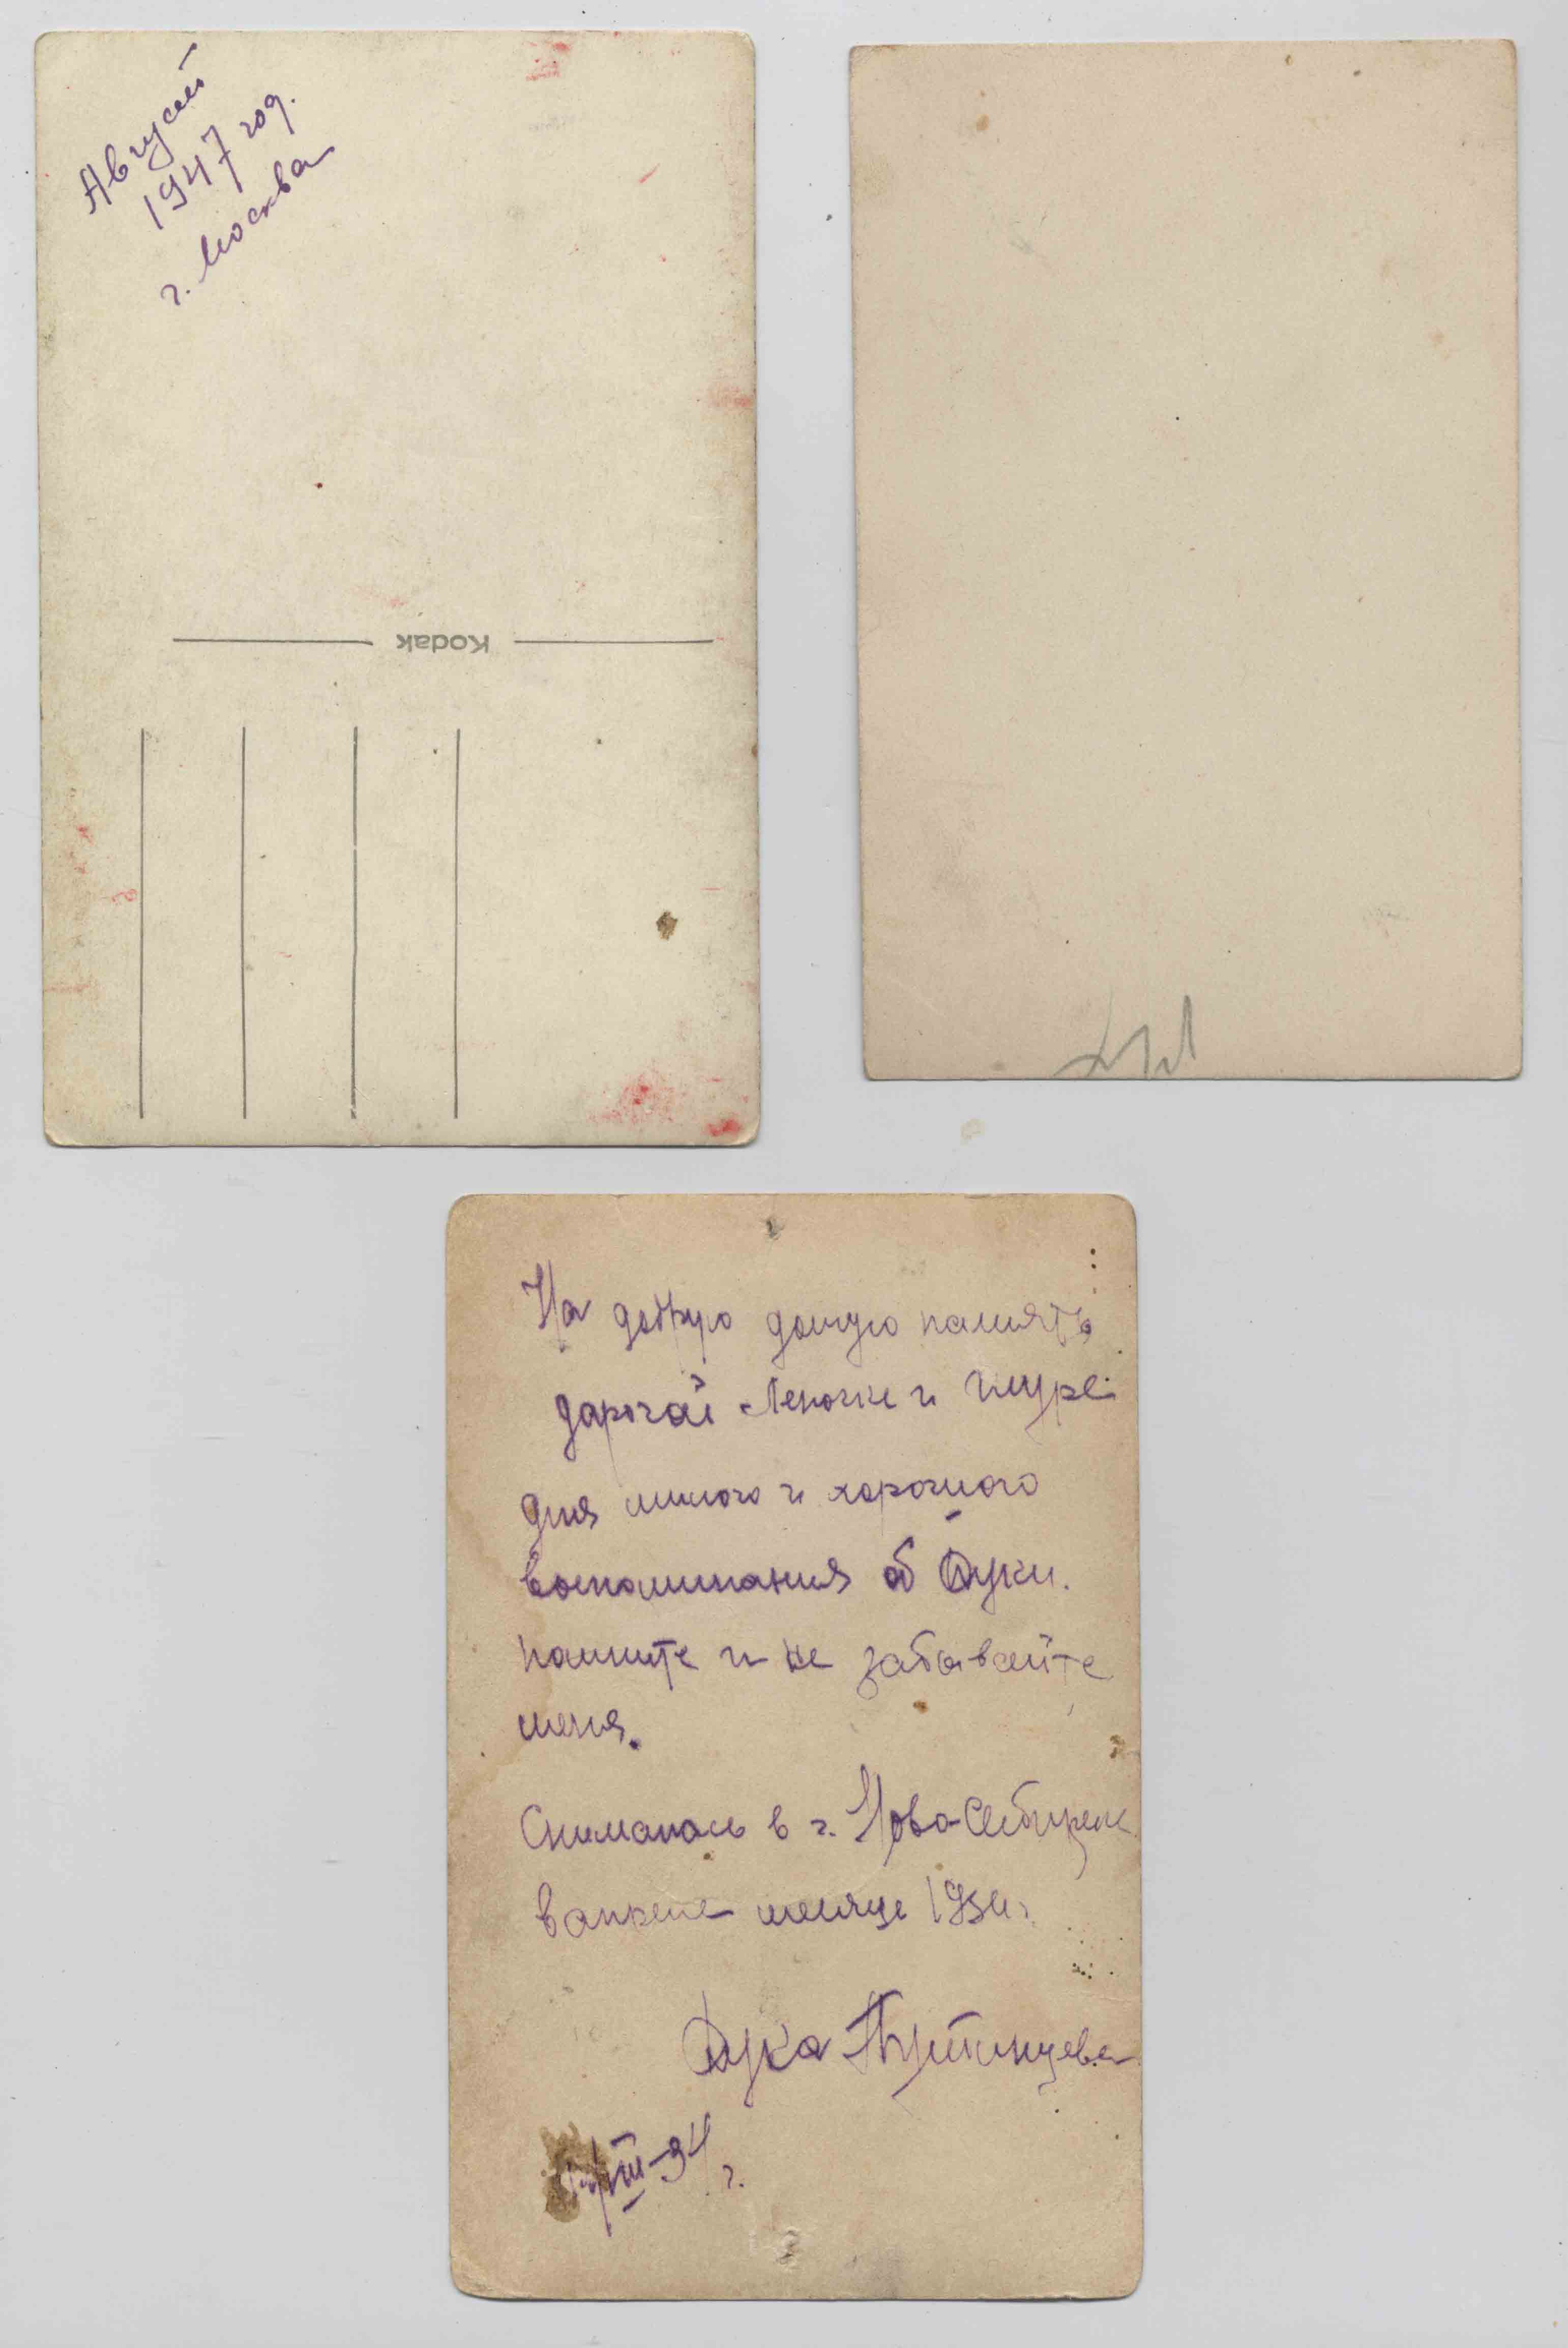 Август
1947 год.
г. Москва
Kodak
На добрую долгую память
дарогай Леночке и Шуре
для милого и хорошого
воспоминания об Дуки.
помните и не забывайте
меня.
Снималась в г. Ново-Сибирске
в апреле месяце 1934г.
Дука
VIII-34 г.